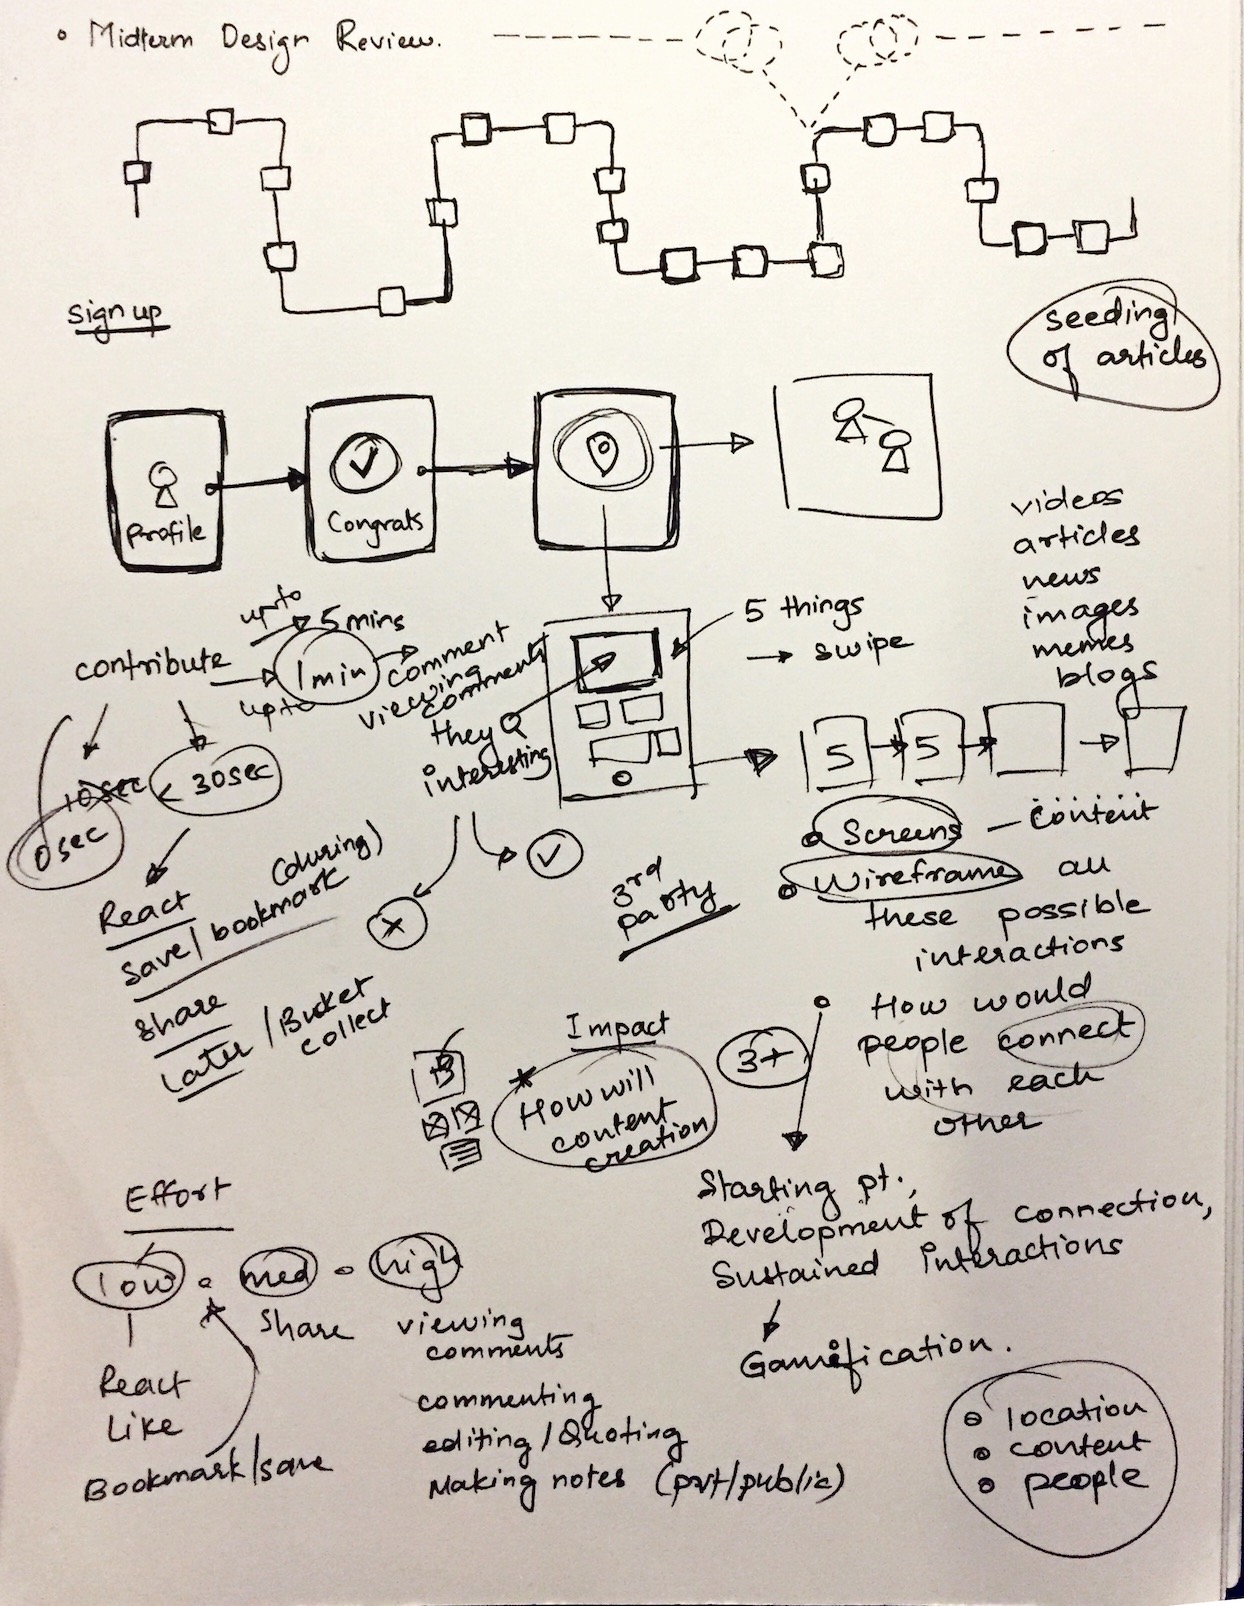 Midterm Design Review.
Sign up
seeding
of articles
Profile
Congrats
videos
articles
news
images
memes
blogs
5 things
→ swipe
contribute
upto
5 mins
upto
1 min
comment
viewing
comments
they
interesting
10 sec
0 sec
< 30 sec
5
5
React
Save/bookmark
(during)
Share
Later / Bucket
collect
3rd
party
Screens — content
Wireframe all
these possible
interactions
How would
people connect
with each
other
3+
Impact
* How will
content
creation
Starting pt.,
Development of connection,
Sustained interactions
Gamification.
Effort
low
med
high
React
Like
Bookmark/save
Share
viewing
comments
commenting
editing/Quoting
Making notes (pvt/public)
location
content
people